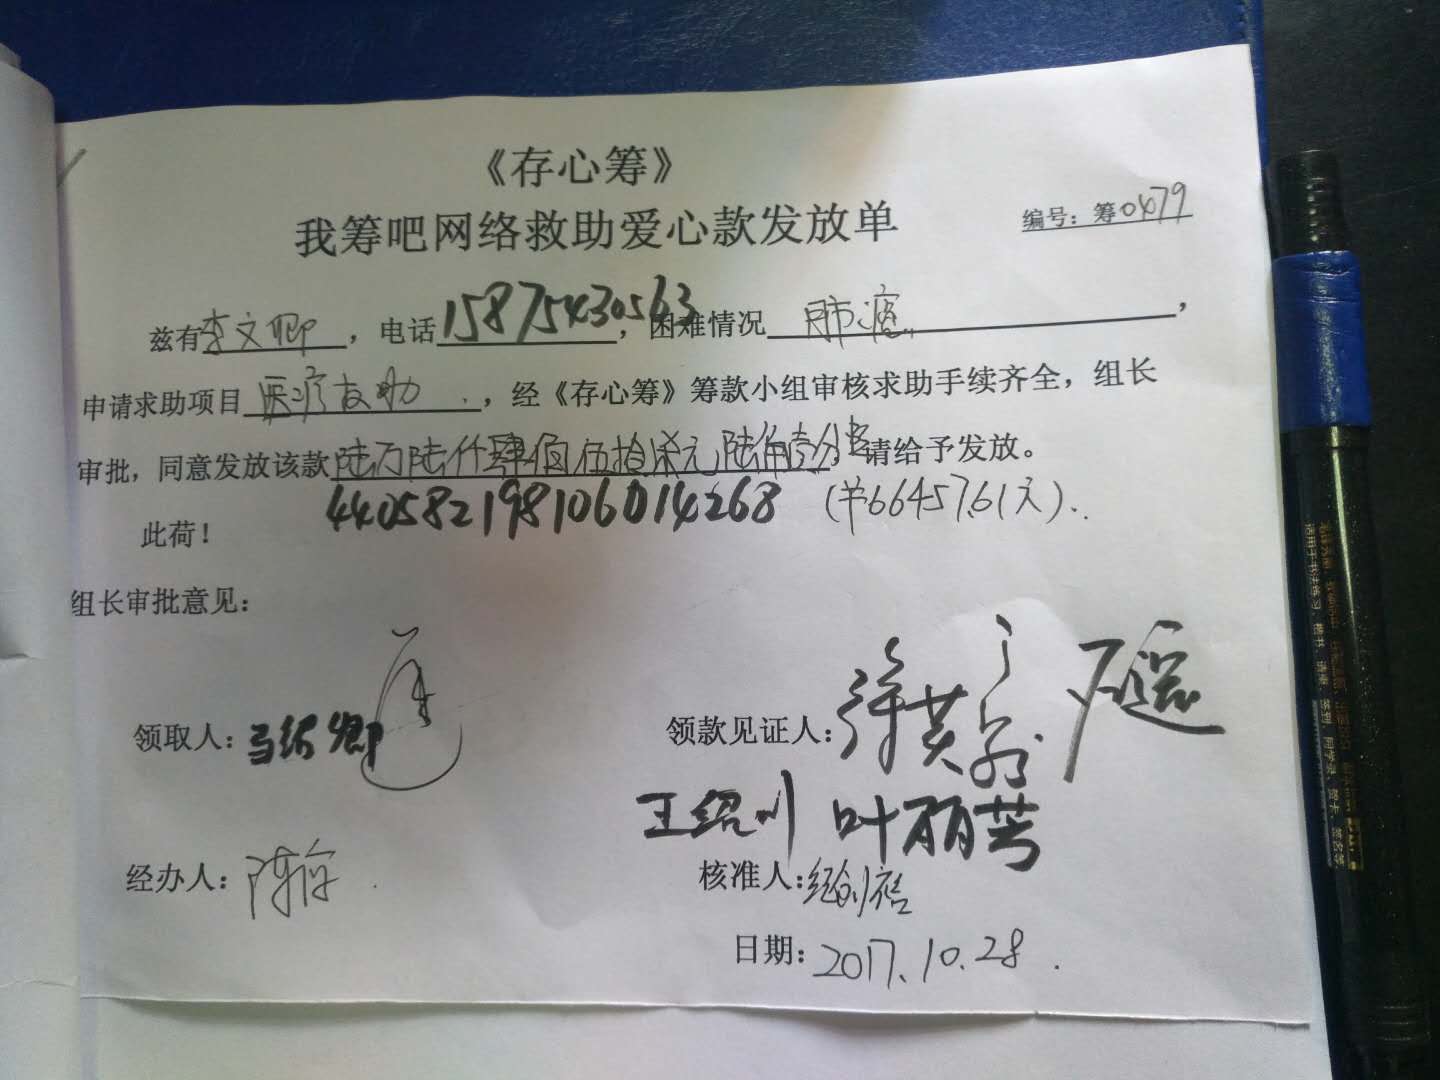 《存心筹》
我筹吧网络救助爱心款发放单
编号：筹0479
兹有李文卿，电话15875430563，困难情况 肺癌，
申请求助项目医疗救助，经《存心筹》筹款小组审核求助手续齐全，组长
审批，同意发放该款陆万陆仟肆佰伍拾柒元陆角壹分，请给予发放。
440582198106014268 (¥66457.61元)..
此荷！
组长审批意见：
领取人： 领款见证人：
王绍川 叶丽芳
经办人：陈 核准人：
日期：2017.10.28.